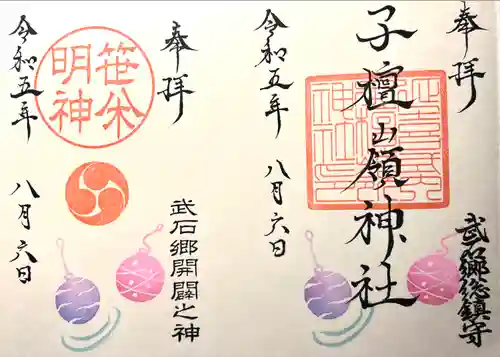 奉拝
武石郷総鎮守
子檀嶺神社
令和五年 八月六日
奉拝
武石郷開闢之神
笹焼明神
令和五年 八月六日